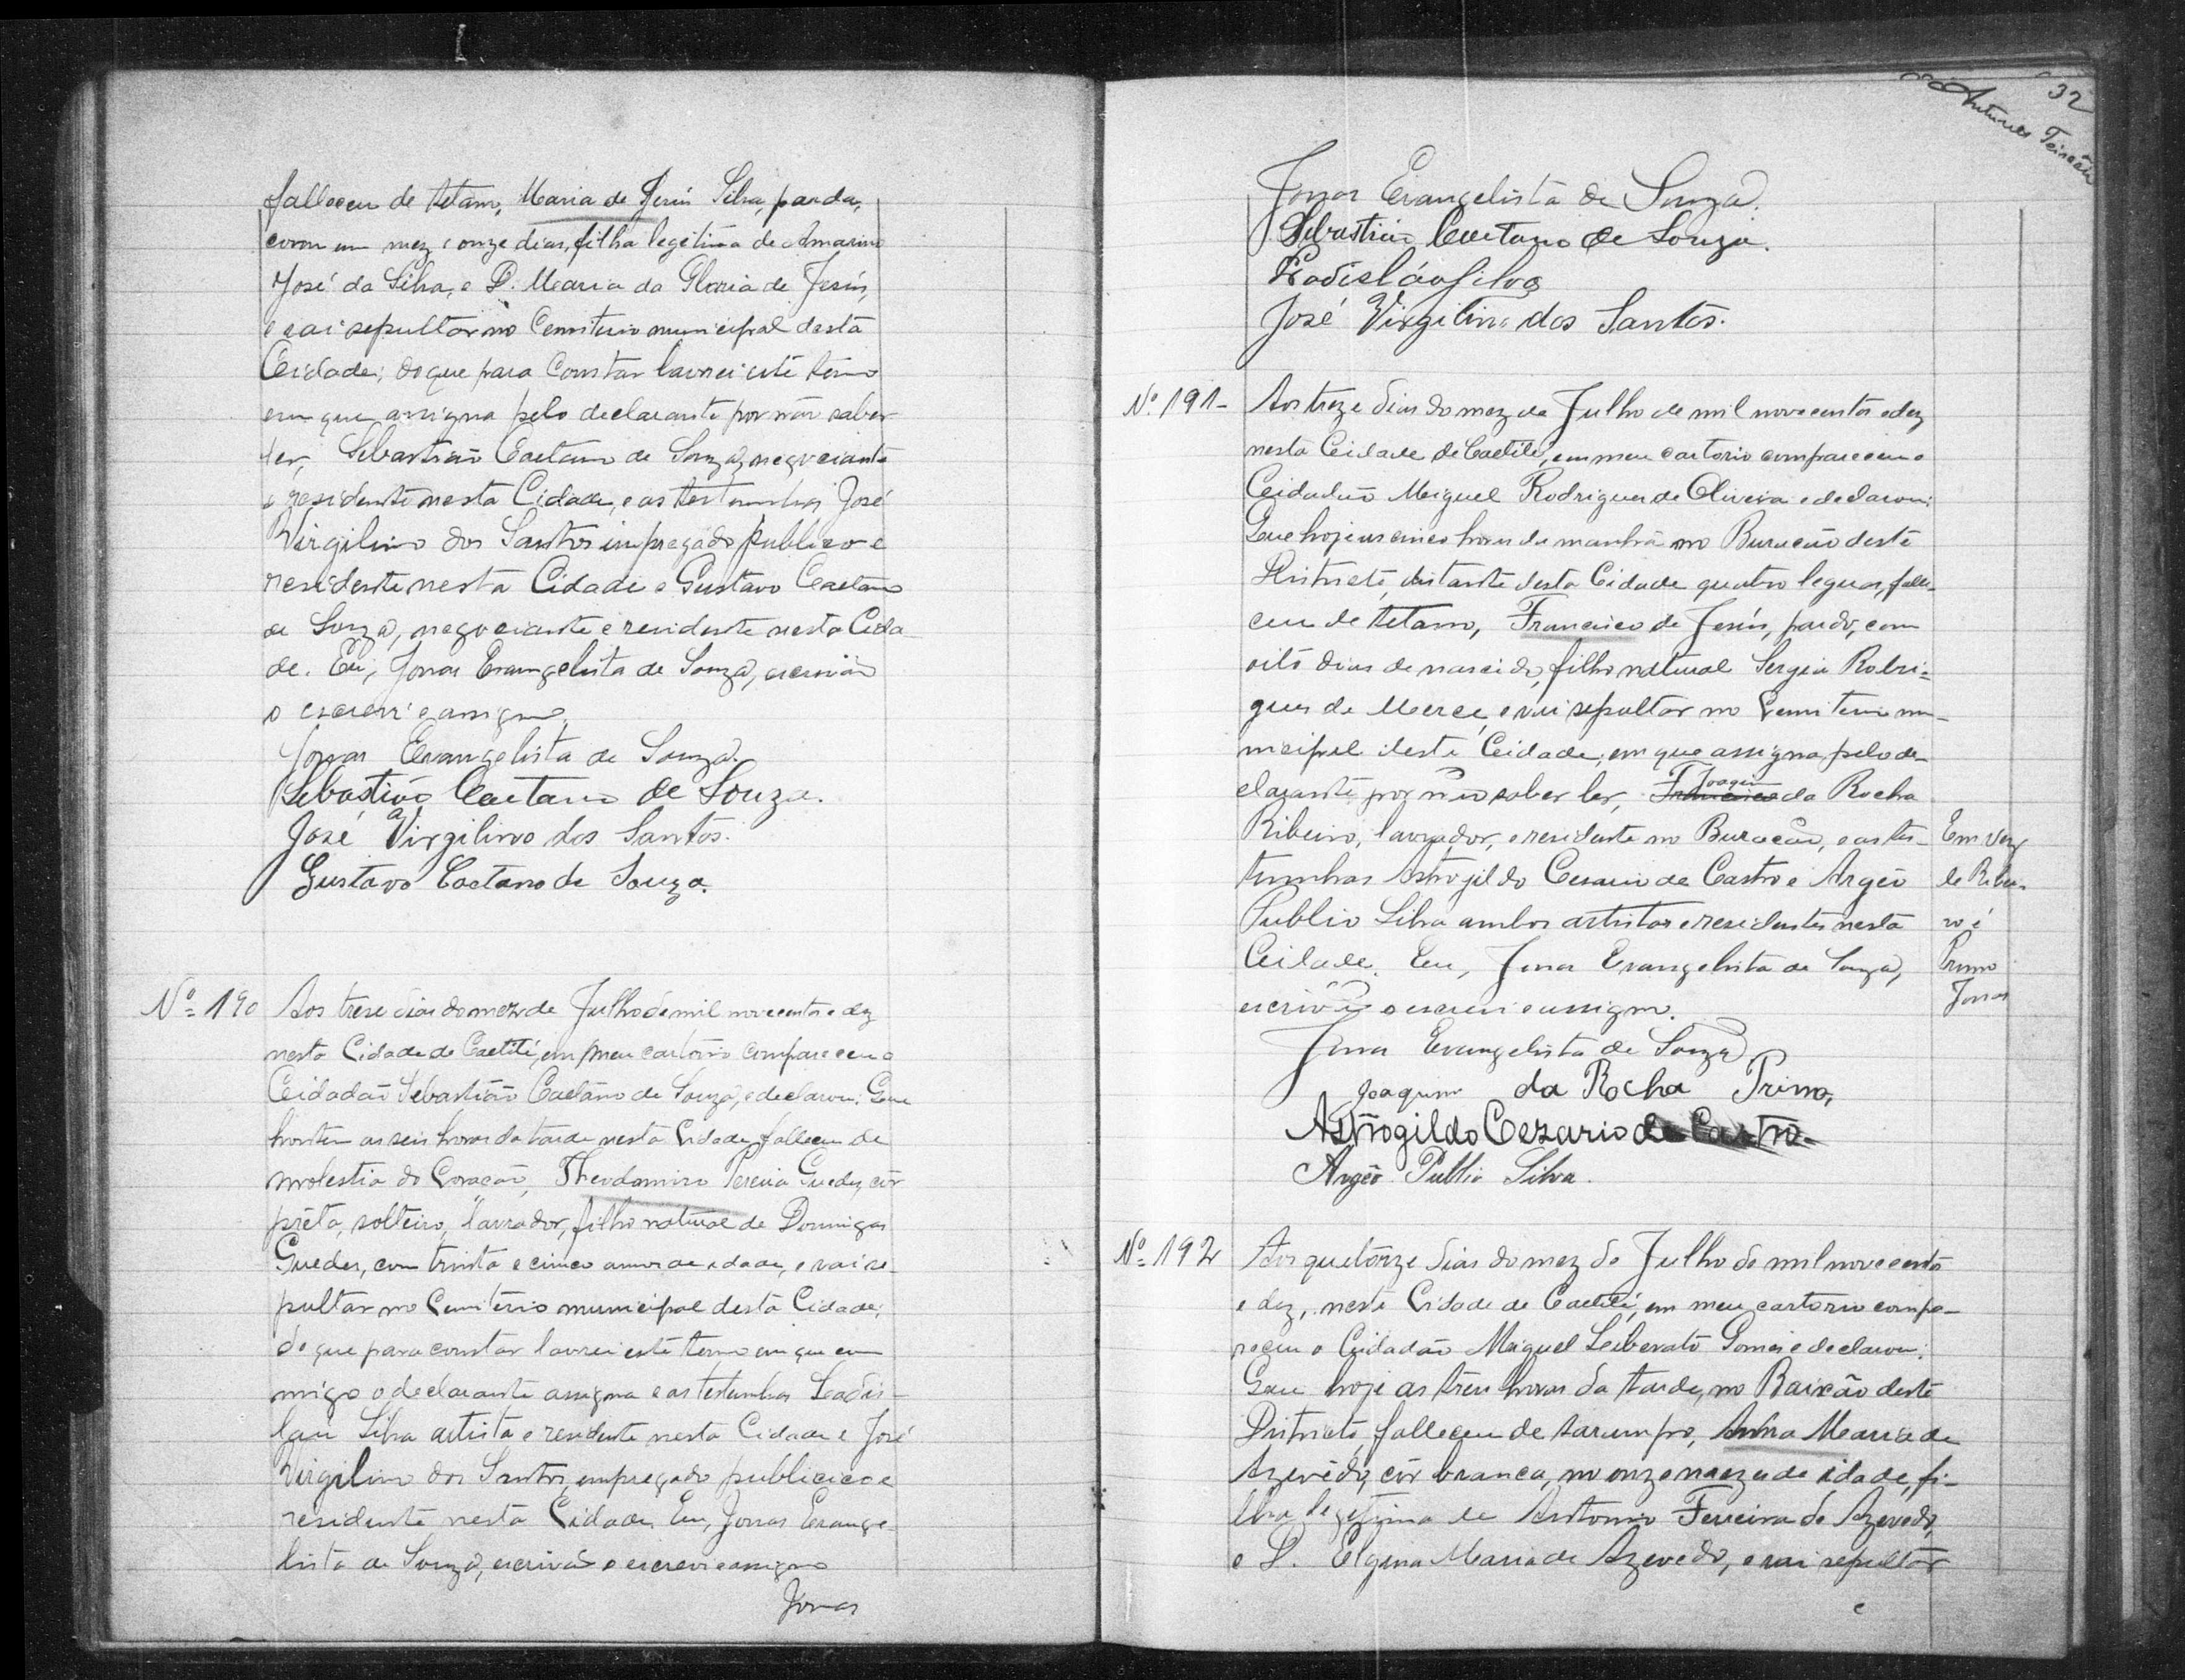 falleceu de tetano, Maria de Jesús Silva, parda,
com um mez e onze dias, filha legitima de Amarino
José da Silva, e D. Maria da Gloria de Jesús,
e vai sepultar no Cemiterio municipal desta
Ceidade; do que para constar lavrei este termo
em que assigna pelo declarante por não saber
ler, Sebastião Caetano de Souza, negociante
e residente nesta Cidade, e as testemunhas José
Virgilino dos Santos impregado publico e
residente nesta Cidade e Gustavo Caetano
de Souza, negociante e residente nesta Cida
de. Eu, Jonas Evangelista de Souza, escrivão
o escrevi e assigno.
Jonas Evangelista de Souza.
Sebastião Caetano de Souza.
José Virgilino dos Santos.
Gustavo Caetano de Souza.
Nº 190 Aos trese dias do mez de Julho de mil novecentos e dez
nesta Cidade de Caetité, em meu cartorio compareceu o
Ceidadão Sebastião Caetano de Souza, e declarou: Que
hontem as seis horas da tarde nesta Cidade, falleceu de
molestia do Coração, Theodomiro Pereira Guedes, côr
prêta, solteiro, lavrador, filho natural de Domingas
Guedes, com trinta e cinco annos de edade, e vai se-
pultar no Cemitério municipal desta Cidade;
do que para constar lavrei este termo em que com
migo o declarante assigna e as testemunhas Ladis-
lau Silva artista e residente nesta Cidade e José
Virgilino dos Santos, empregado publicico e
residente nesta Cidade. Eu, Jonas Evange-
lista de Souza, escrivão o escrevi e assigno
Jonas
32
Antunes Teixeira
Jonas Evangelista de Souza.
Sebastião Caetano de Souza.
Ladisláo Silva
José Virgilino dos Santos.
Nº 191- Aos treze dias do mez de Julho de mil novecentos e dez
nesta Ceidade de Caetité, em meu cartorio compareceu o
Ceidadão Meiguel Rodrigues de Oliveira e declarou:
Que hoje as cinco horas da manhã no Buracão deste
Districto, distante desta Cidade quatro leguas, falle-
ceu de tetano, Francisco de Jesús, pardo, com
oito dias de nascido, filho natural Sergia Rodri=
gues de Merce, e vai sepultar no Cemiterio mu-
nicipal deste Ceidade, em que assigna pelo de-
clarante por não saber ler, Francisco Joaquim da Rocha
Ribeiro, lavrador, e residente no Buracão, e as tes-
temunhas Astrogildo Cesario de Castro e Argeo
Publio Silva ambos artistas e residentes nesta
Ceidade. Eu, Jonas Evangelista de Souza,
escrivão o escrevi e assigno.
Em vez
de Ribei-
ro é
Primo
Jonas
Jonas Evangelista de Souza
Joaquim da Rocha Primo,
Astrogildo Cezario de Castro-
Argeo Publio Silva.
Nº 192 Aos quetorze dias do mez de Julho de mil novecento
e dez, neste Cidade de Caetité, em meu cartorio compa-
receu o Ceidadão Meiguel Leiberato Gomes e declarou:
Que hoje as tres horas da tarde, no Baixão deste
Districto, falleceu de sarampo, Anna Maria de
Azevêdo, côr branca, no onze mezes de idade, fi-
lha legitima de Antonio Ferreira de Azevedo,
e D. Elgina Maria de Azevedo, e vai sepultar